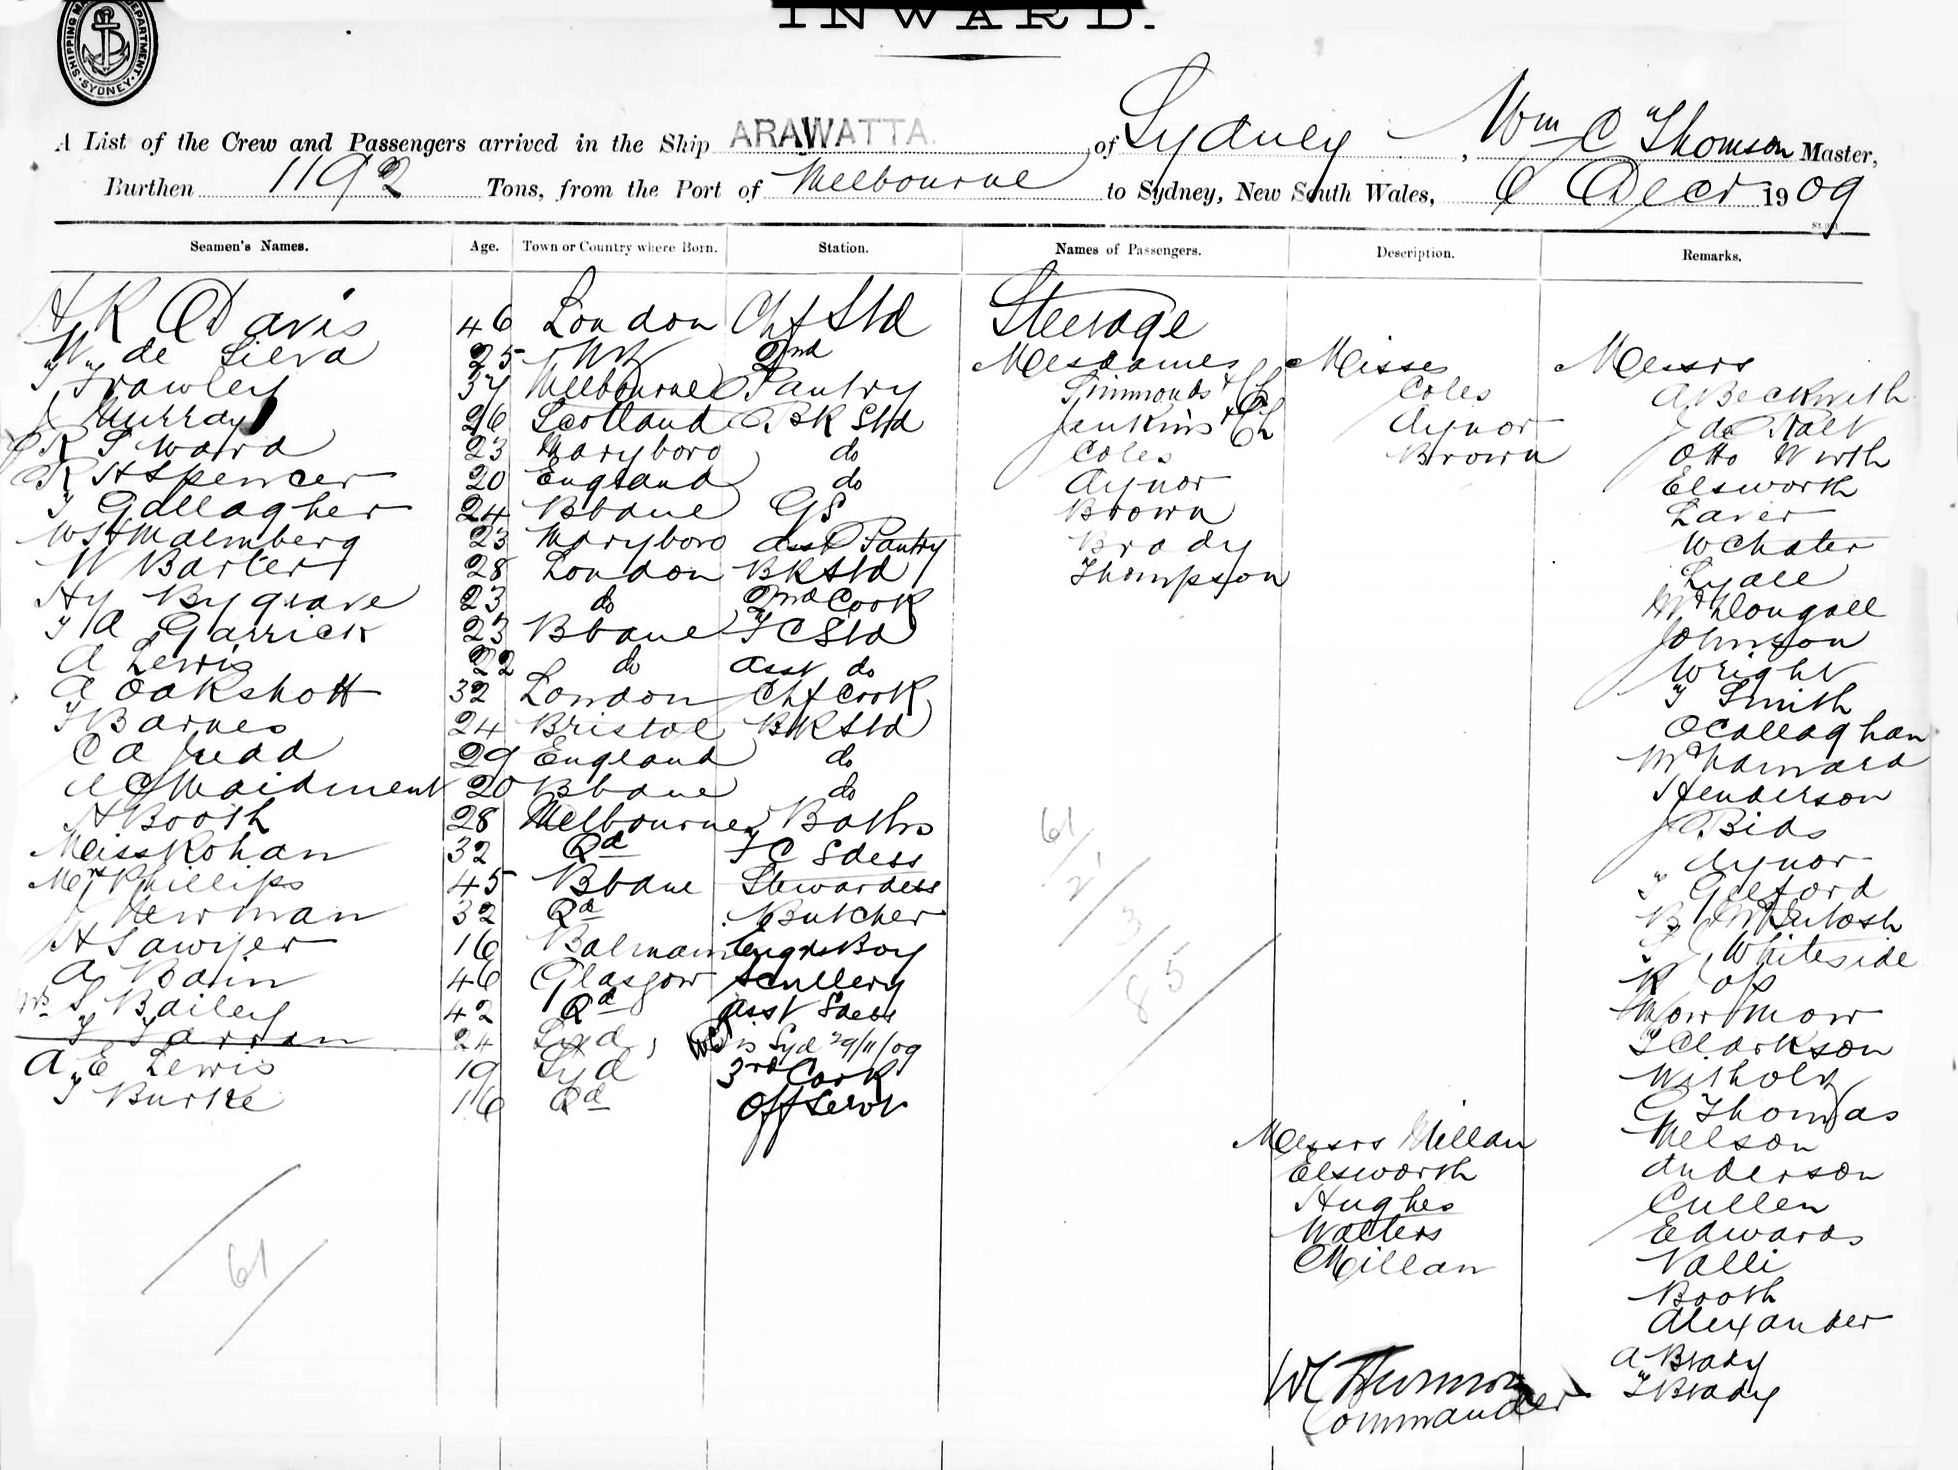 INWARD.
SHIPPING MASTER'S DEPARTMENT SYDNEY
A List of the Crew and Passengers arrived in the Ship ARAWATTA of Sydney, Wm C Thomson Master,
Burthen 1192 Tons, from the Port of Melbourne to Sydney, New South Wales, 6 Decr 1909
Seamen's Names. Age. Town or Country where Born. Station. Names of Passengers. Description. Remarks.
H R Davis 46 London Chf Std
Wm de Silva 25 2nd
T Frawley 37 Melbourne Pantry
J Murray 26 Scotland BK Std
R S Ward 23 Maryboro do
R H Spencer 20 England do
T Gallagher 24 Bbane GS
W H Malmberg 23 Maryboro asst Pantry
W Barter 28 London BK Std
Hy Bygrave 23 do 2nd Cook
T A Garrick 23 Bbane FC Std
A Lewis 22 do asst do
A Oakshott 32 London Chf Cook
T Barnes 24 Bristol BK Std
C A Judd 29 England do
A C Maidment 20 Bbane do
H Booth 28 Melbourne Baths
Miss Kohan 32 Qd FC Sdess
Mrs Phillips 45 Bbane Stewardess
J Newman 32 Qd Butcher
H Sawyer 16 Balmain Engrs Boy
A Bain 46 Glasgow Scullery
Mrs S Bailey 42 Qd asst Sdess
T Tarran 24 Syd, is Syd 29/11/09
A E Lewis 19 Syd 3rd Cook
T Burke 16 Qd Off Servt
61
Steerage
Mesdames
Simmonds + Ch
Jenkins + Ch
Coles
Aynor
Brown
Brady
Thompson
61
21
3
85
Misses
Coles
Aynor
Brown
Messrs Millan
Elsworth
Hughes
Walters
Millan
Messrs
A Beckwith
J de
Otto Wirth
Elsworth
Laver
W Chater
Lyall
McDougall
Johnson
Wright
T Smith
OCallaghan
McNamara
Henderson
J Bids
" Aynor
T Gilford
B McIntosh
J Whiteside
K
Mow
T Clarkson
G Thomas
Nelson
Anderson
Cullen
Edwards
Valli
Booth
Alexander
A Brady
T Brady
WC Thomson
Commander